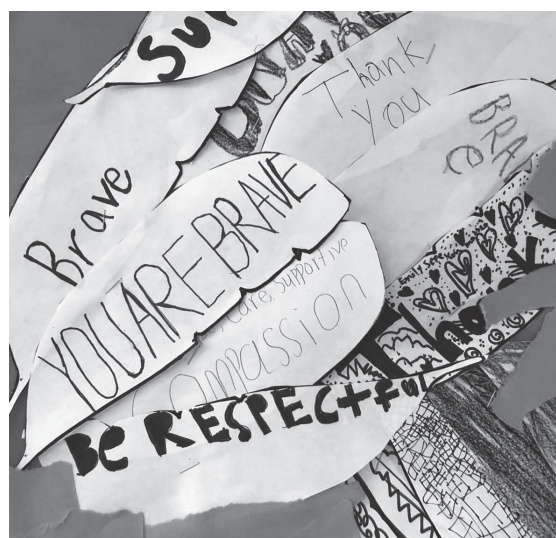 Sup
Thank
you
BRAVE
Brave
YOU ARE BRAVE
care, supportive
COMPASSION
BE RESPECTful